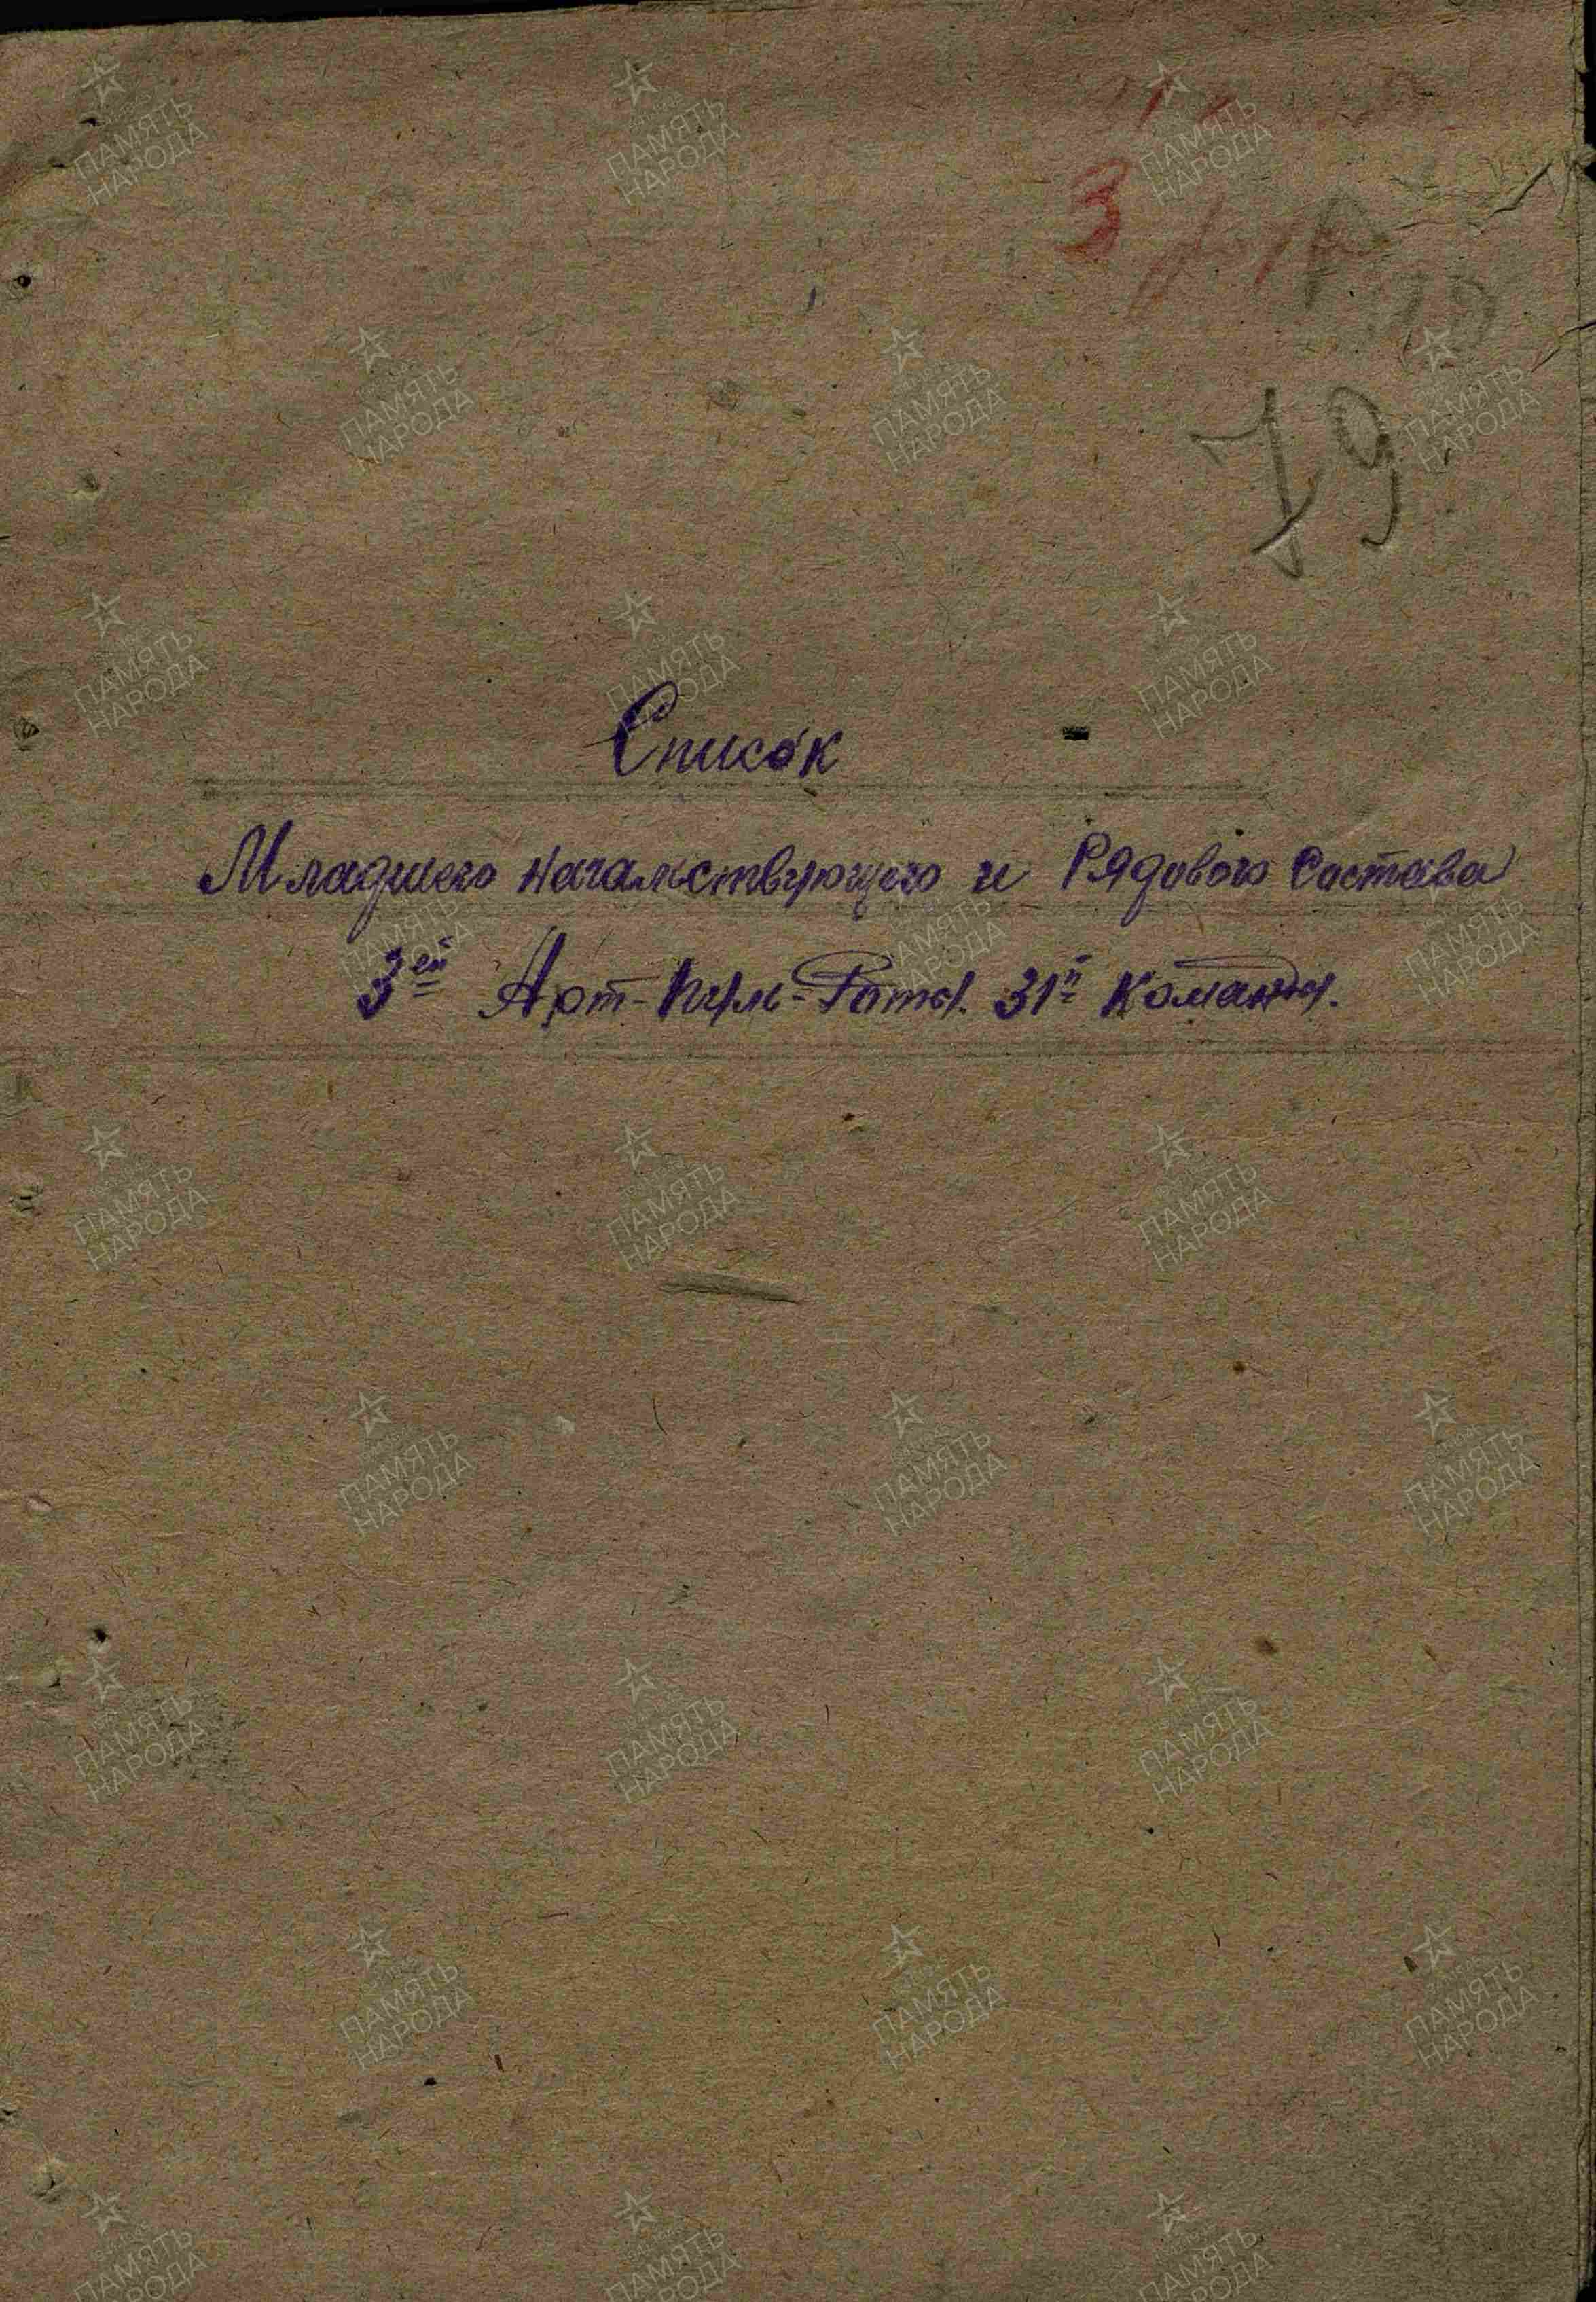 3
79
Список
Младшего начальствующего и Рядового Состава
3ей Арт-Пуль-Роты. 31й Команды.
ПАМЯТЬ НАРОДА